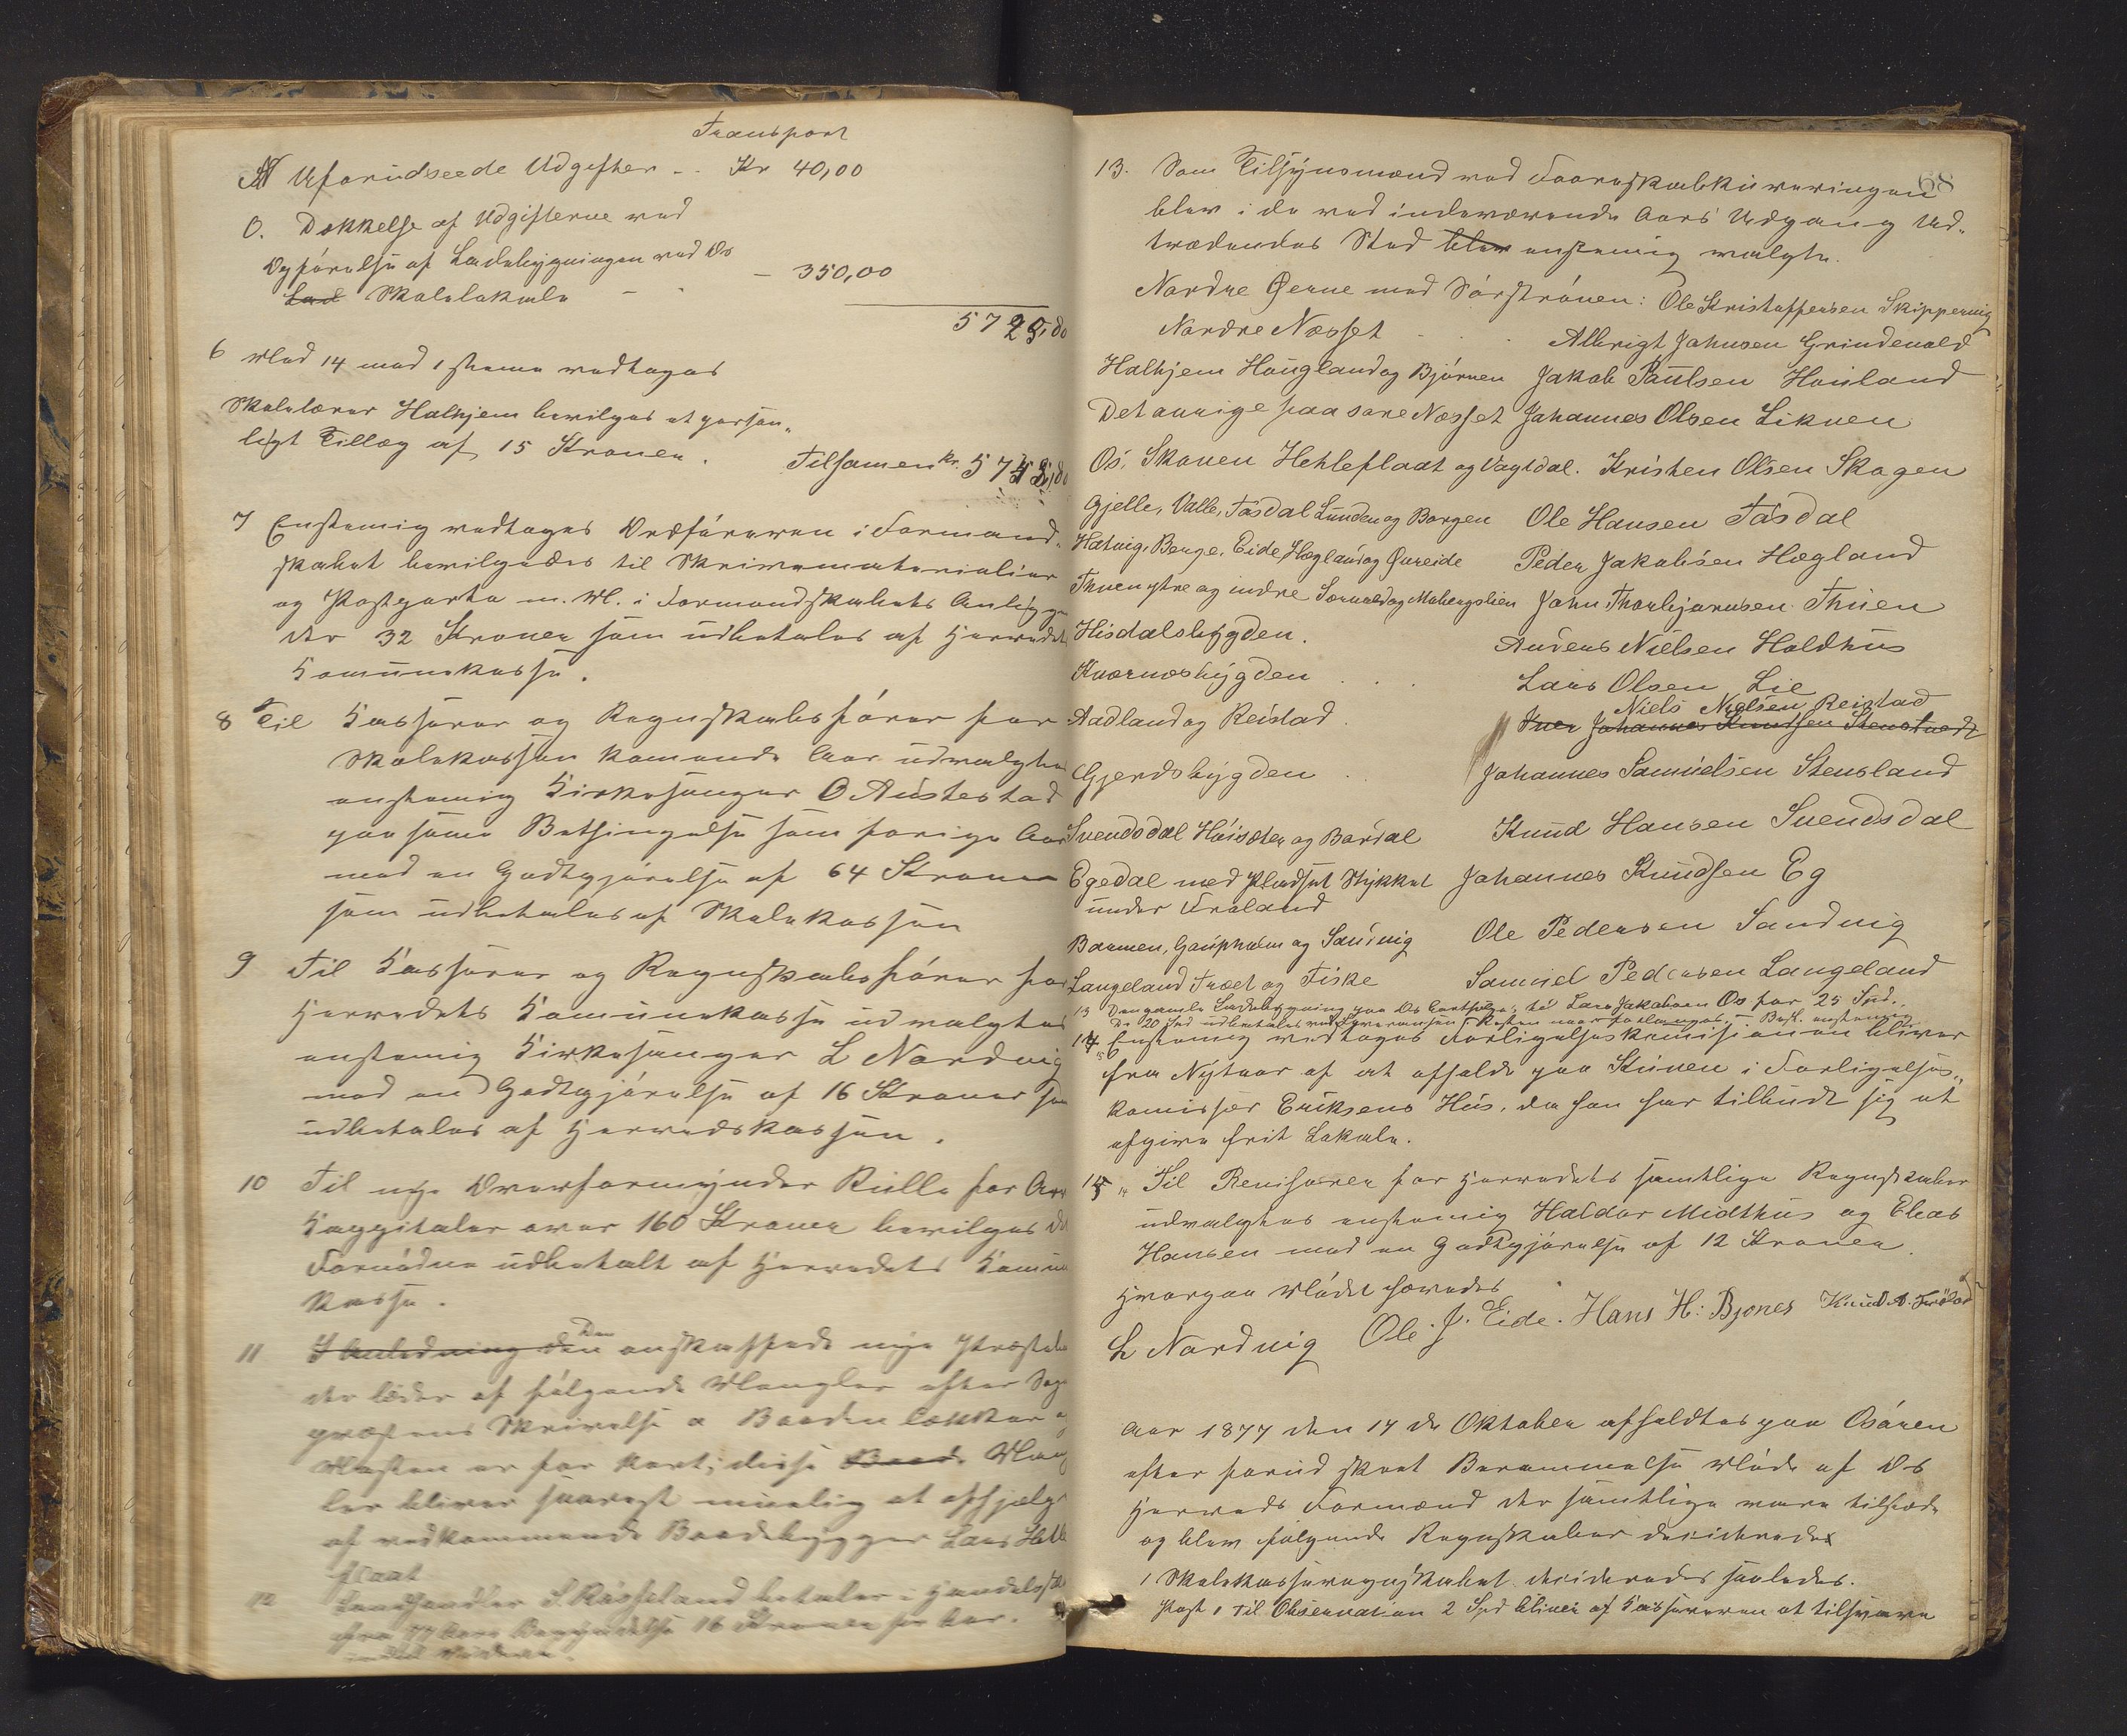 Transport
N Uforudseede Udgifter - - Kr 40,00
O. Dekkelse af Udgifterne ved
Opførelse af Ladebygningen ved Os
Lad Skolelokale - - - 350,00
57 25,80
6 Med 14 mod 1 stemme vedtoges
Skolelærer Halhjem bevilges et person„
ligt Tillæg af 15 Kroner.
Tilsamen kr. 57
7 Enstemig vedtoges Ordføreren i Formand„
skabet bevilgedes til Skrivematerialier
og Postporto m. M. i Formandskabets Anligg
der 32 Kroner som udbetales af Herredets
Komunekasse.
8 Til Kasserer og Regnskabsfører for
Skolekassen komende Aar udvalgtes
enstemig Kirkesanger O Austestad
paa same Betsingelse som forige Aar
med en Godtgjørelse af 64 Kroner
som udbetales af Skolekassen
9 Til Kasserer og Regnskabsfører for
Herredets Komunekasse udvalgtes
enstemig Kirkesanger L Nordvig
med en Godtgjørelse af 16 Kroner som
udbetales af Herredskassen.
10 Til nye Overformynder Rulle for
Kappitaler over 160 Kroner bevilges det
Fornødne udbetalt af Herredets Komune
kasse.
11 I Anledning den Den anskaffede nye Præste
der lider af følgende Mangler efter Sogne
præstens Skrivelse a Baaden lækker og
Masten er for kort; disse Baad Mang
ler bliver snarest muelig at afhjælpe
af vedkommende Baadebygger Lars Hatle
flaat
12 Landhandler S. Røsseland betaler i Handelsskat
fra 77 Aars Begyndelse 16 Kroner pr Aar.
68
13. Som Tilsynsmænd ved Faareskabkureringen
blev i de ved indeværende Aars Udgang Ud„
trædendes Sted blev enstemig valgte.
Nordre Øerne med Sørstrønen: Ole Kristoffersen Skippervig
Nordre Næsset - - - Albrigt Johnsen Grindevold
Halhjem Hougland og Bjørnen Jakob Paulsen Houland
Det øvrige paa søre Næsset Johannes Olsen Liknen
Os, Skaven Hehleflaat og Vagtdal. Kristen Olsen Skogen
Gjelle, Valle, Tøsdal Lunden og Borgen Ole Hansen Tøsdal
Hatvig, Berge, Eide, Hægland og Øvreide Peder Jakobsen Hægland
Thuen ytre og indre Sørvold og Mobergslien John Thorbjørnsen Thuen
Hisdalsbygden. Anders Nielsen Holdhus
Kværnesbygden . . . Lars Olsen Lie
Aadland og Reistad . Niels Nielsen Reistad
Iver Johannes Knudsen Stenstvedt
Gjerdsbygden . Johannes Samuelsen Stensland
Svendsdal Høisæter og Bordal Knud Hansen Svendsdal
Egedal med Pladset Stykket Johannes Knudsen Eg
under Frøland
Barmen, Gaupholm og Sandvig Ole Pedersen Sandvig
Langeland Træet og Fiske Samuel Pedersen Langeland
13 Den gamle Ladebygning paa Os bortsælges til Lars Jakobsen Os for 25 Spd.,
De 20 Spd udbetales ved Leveransen, Resten naar forlanges. - Besl. enstemig
14 Enstemig vedtoges Forligelseskomisionen bliver
fra Nytaar af at afholde paa Kuven i Forligelses„
komissær Eriksens Hus, da han har tilbudt sig at
afgive frit Lokale.
15 „ Til Revisorer for Herredets samtlige Regnskaber
udvalgtes enstemig Haldor Midthus og Elias
Hansen mod en Godtgjørelse af 12 Kroner.
Hvorpaa Mødet hævedes
L Nordvig Ole J. Eide. Hans H: Bjønes Knud A. Frøland
Aar 1877 den 17 de Oktober afholdtes paa Osøren
efter forud skeet Berammelse Møde af Os
Herreds Formænd der samtlige vare tilstede
og blev følgende Regnskaber decideredes
1 Skolekasseregnskabet decideredes saaledes.
Post 1 Til Observation 2 Spd bliver af Kassereren at tilsvare